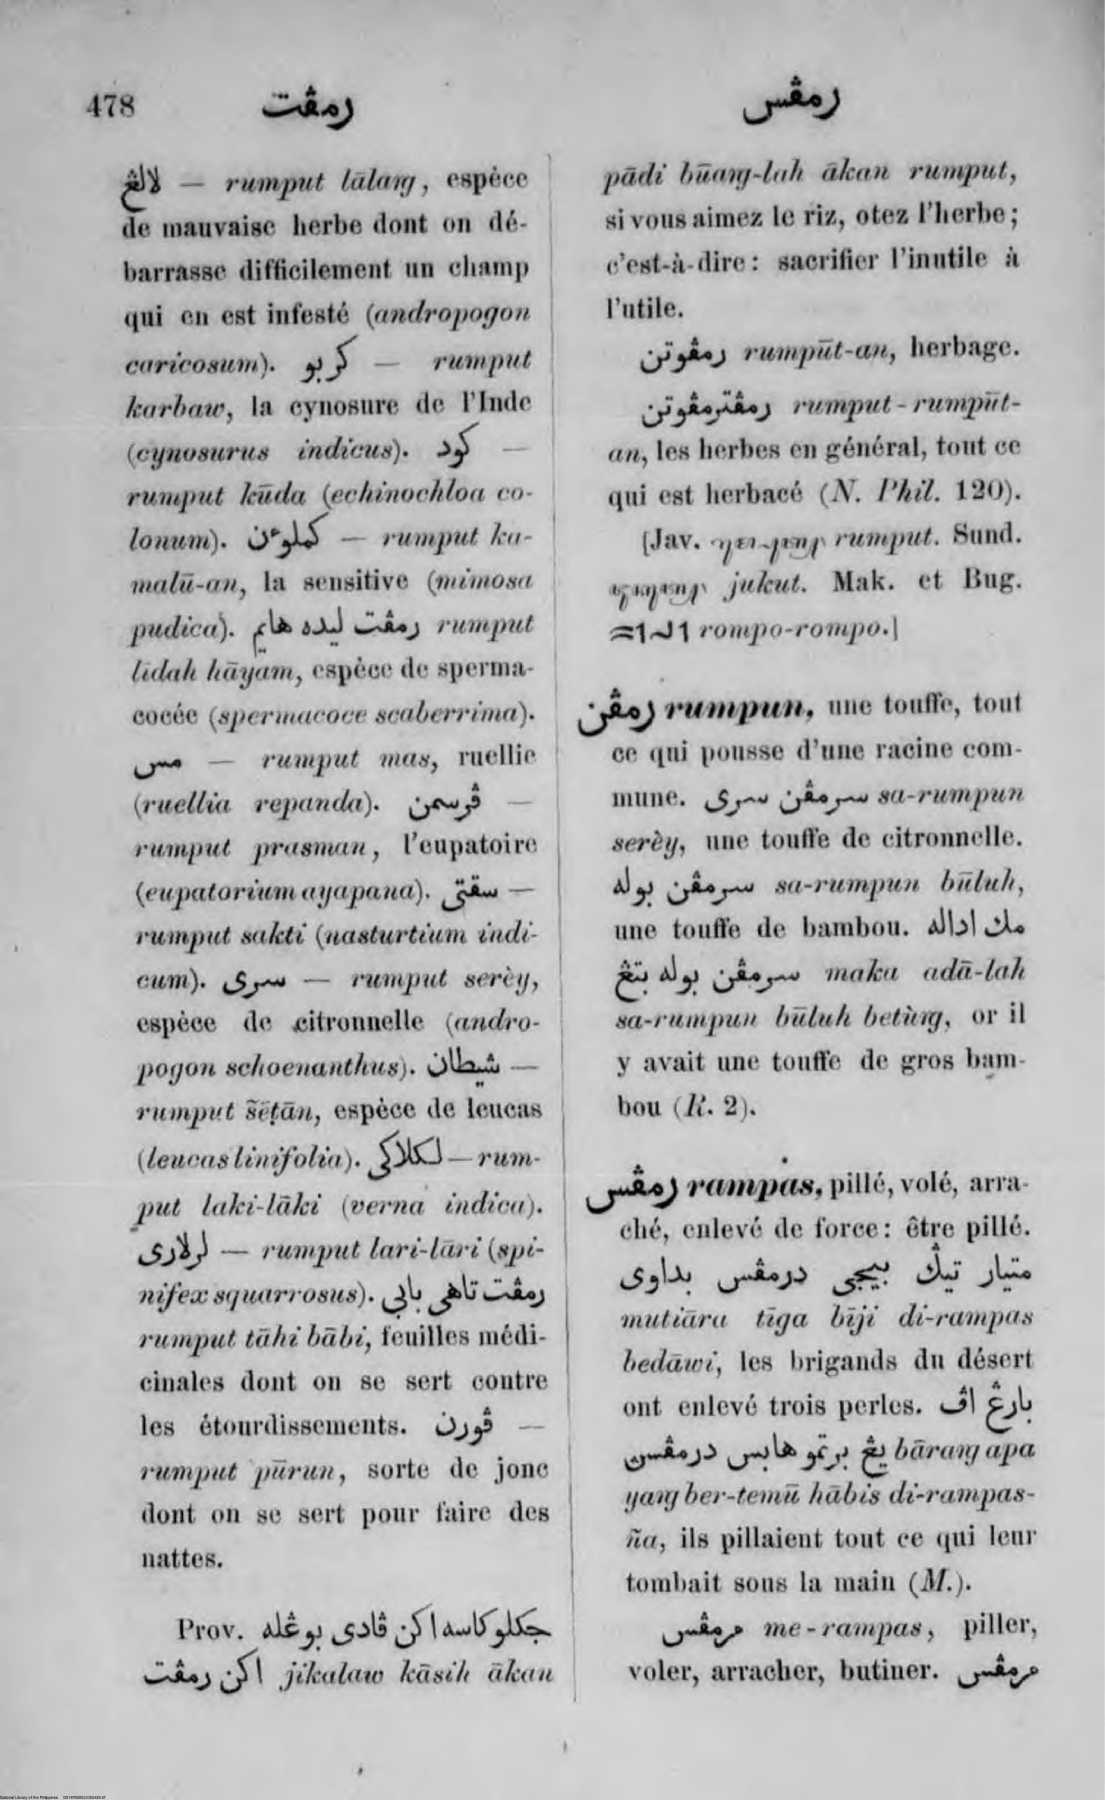 478
رمڤت
رمڤس
لالڠ — rumput lālaŋ, espèce
de mauvaise herbe dont on dé-
barrasse difficilement un champ
qui en est infesté (andropogon
caricosum). كربو — rumput
karbaw, la cynosure de l'Inde
(cynosurus indicus). كود —
rumput kūda (echinochloa co-
lonum). كملوءن — rumput ka-
malū-an, la sensitive (mimosa
pudica). رمڤت ليده هايم rumput
līdah hāyam, espèce de sperma-
cocée (spermacoce scaberrima).
مس — rumput mas, ruellie
(ruellia repanda). ڤرسمن —
rumput prasman, l'eupatoire
(eupatorium ayapana). سقتي —
rumput sakti (nasturtium indi-
cum). سري — rumput serèy,
espèce de citronnelle (andro-
pogon schoenanthus). شيطان —
rumput šēṭān, espèce de leucas
(leucas linifolia). لكلاكي — rum-
put laki-lāki (verna indica).
لرلاري — rumput lari-lāri (spi-
nifex squarrosus). رمڤت تاهي بابي
rumput tāhi bābi, feuilles médi-
cinales dont on se sert contre
les étourdissements. ڤورن —
rumput pūrun, sorte de jonc
dont on se sert pour faire des
nattes.
Prov. جكلو كاسه اكن ڤادي بوڠله
اكن رمڤت jikalaw kāsih ākan
pādi būaŋ-lah ākan rumput,
si vous aimez le riz, otez l'herbe;
c'est-à-dire: sacrifier l'inutile à
l'utile.
رمڤوتن rumpūt-an, herbage.
رمڤترمڤوتن rumput-rumpūt-
an, les herbes en général, tout ce
qui est herbacé (N. Phil. 120).
[Jav. rumput. Sund.
jukut. Mak. et Bug.
rompo-rompo.]
رمڤن rumpun, une touffe, tout
ce qui pousse d'une racine com-
mune. سرمڤن سري sa-rumpun
serèy, une touffe de citronnelle.
سرمڤن بوله sa-rumpun būluh,
une touffe de bambou. مك اداله
سرمڤن بوله بتڠ maka adā-lah
sa-rumpun būluh betùŋ, or il
y avait une touffe de gros bam-
bou (R. 2).
رمڤس rampas, pillé, volé, arra-
ché, enlevé de force: être pillé.
متيار تيݢ بيجي درمڤس بداوي
mutiāra tīga bīji di-rampas
bedāwi, les brigands du désert
ont enlevé trois perles. بارڠ اڤ
يڠ برتمو هابس درمڤسن bāraŋ apa
yaŋ ber-temū hābis di-rampas-
ña, ils pillaient tout ce qui leur
tombait sous la main (M.).
مرمڤس me-rampas, piller,
voler, arracher, butiner. مرمڤس